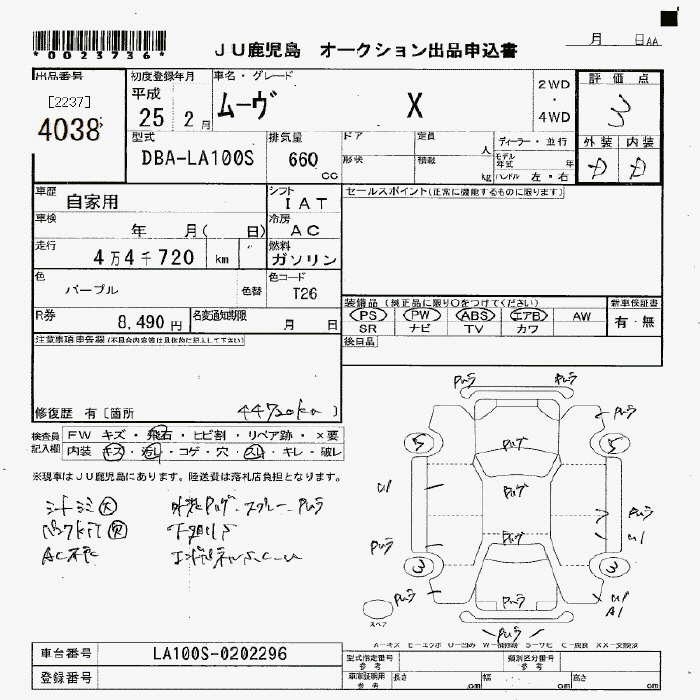 *0023736*
JU鹿児島 オークション出品申込書
月 日AA
出品番号
[2237]
4038
初度登録年月
平成
25 2月
車名・グレード
ムーヴ X
2WD
・
4WD
評価点
3
外装 内装
D D
型式
DBA-LA100S
排気量
660
CC
ドア
形状
定員 人
積載 kg
ディーラー・並行
モデル年式 年
ハンドル 左・右
車歴
自家用
シフト
IAT
車検
年 月( 日)
冷房
AC
走行
4万4千720 km
燃料
ガソリン
色
パープル
色替
色コード
T26
R券
8,490 円
名変通知期限
月 日
セールスポイント(正常に機能するものに限ります)
装備品 (純正品に限り○をつけてください)
新車保証書
PS PW ABS エアB AW
有・無
SR ナビ TV カワ
後日品
注意事項申告欄(不具合内容等は具体的に記入して下さい)
修復歴 有〔箇所 44720km 〕
検査員
記入欄
FW キズ・飛石・ヒビ割・リペア跡・×要
内装 キズ・汚レ・コゲ・穴・スレ・キレ・破レ
※現車はJU鹿児島にあります。陸送費は落札店負担となります。
シートシミ大
AC不良
5 5
3 3
U1
U1
U1
A1
スペア
A-キズ E-エクボ U-凹め W-補修跡 S-サビ C-腐食 XX-交換済
車台番号 LA100S-0202296
登録番号
型式指定番号
参考
類別区分番号
参考
車庫証明用
参考
長さ .cm 幅 .cm 高さ .cm